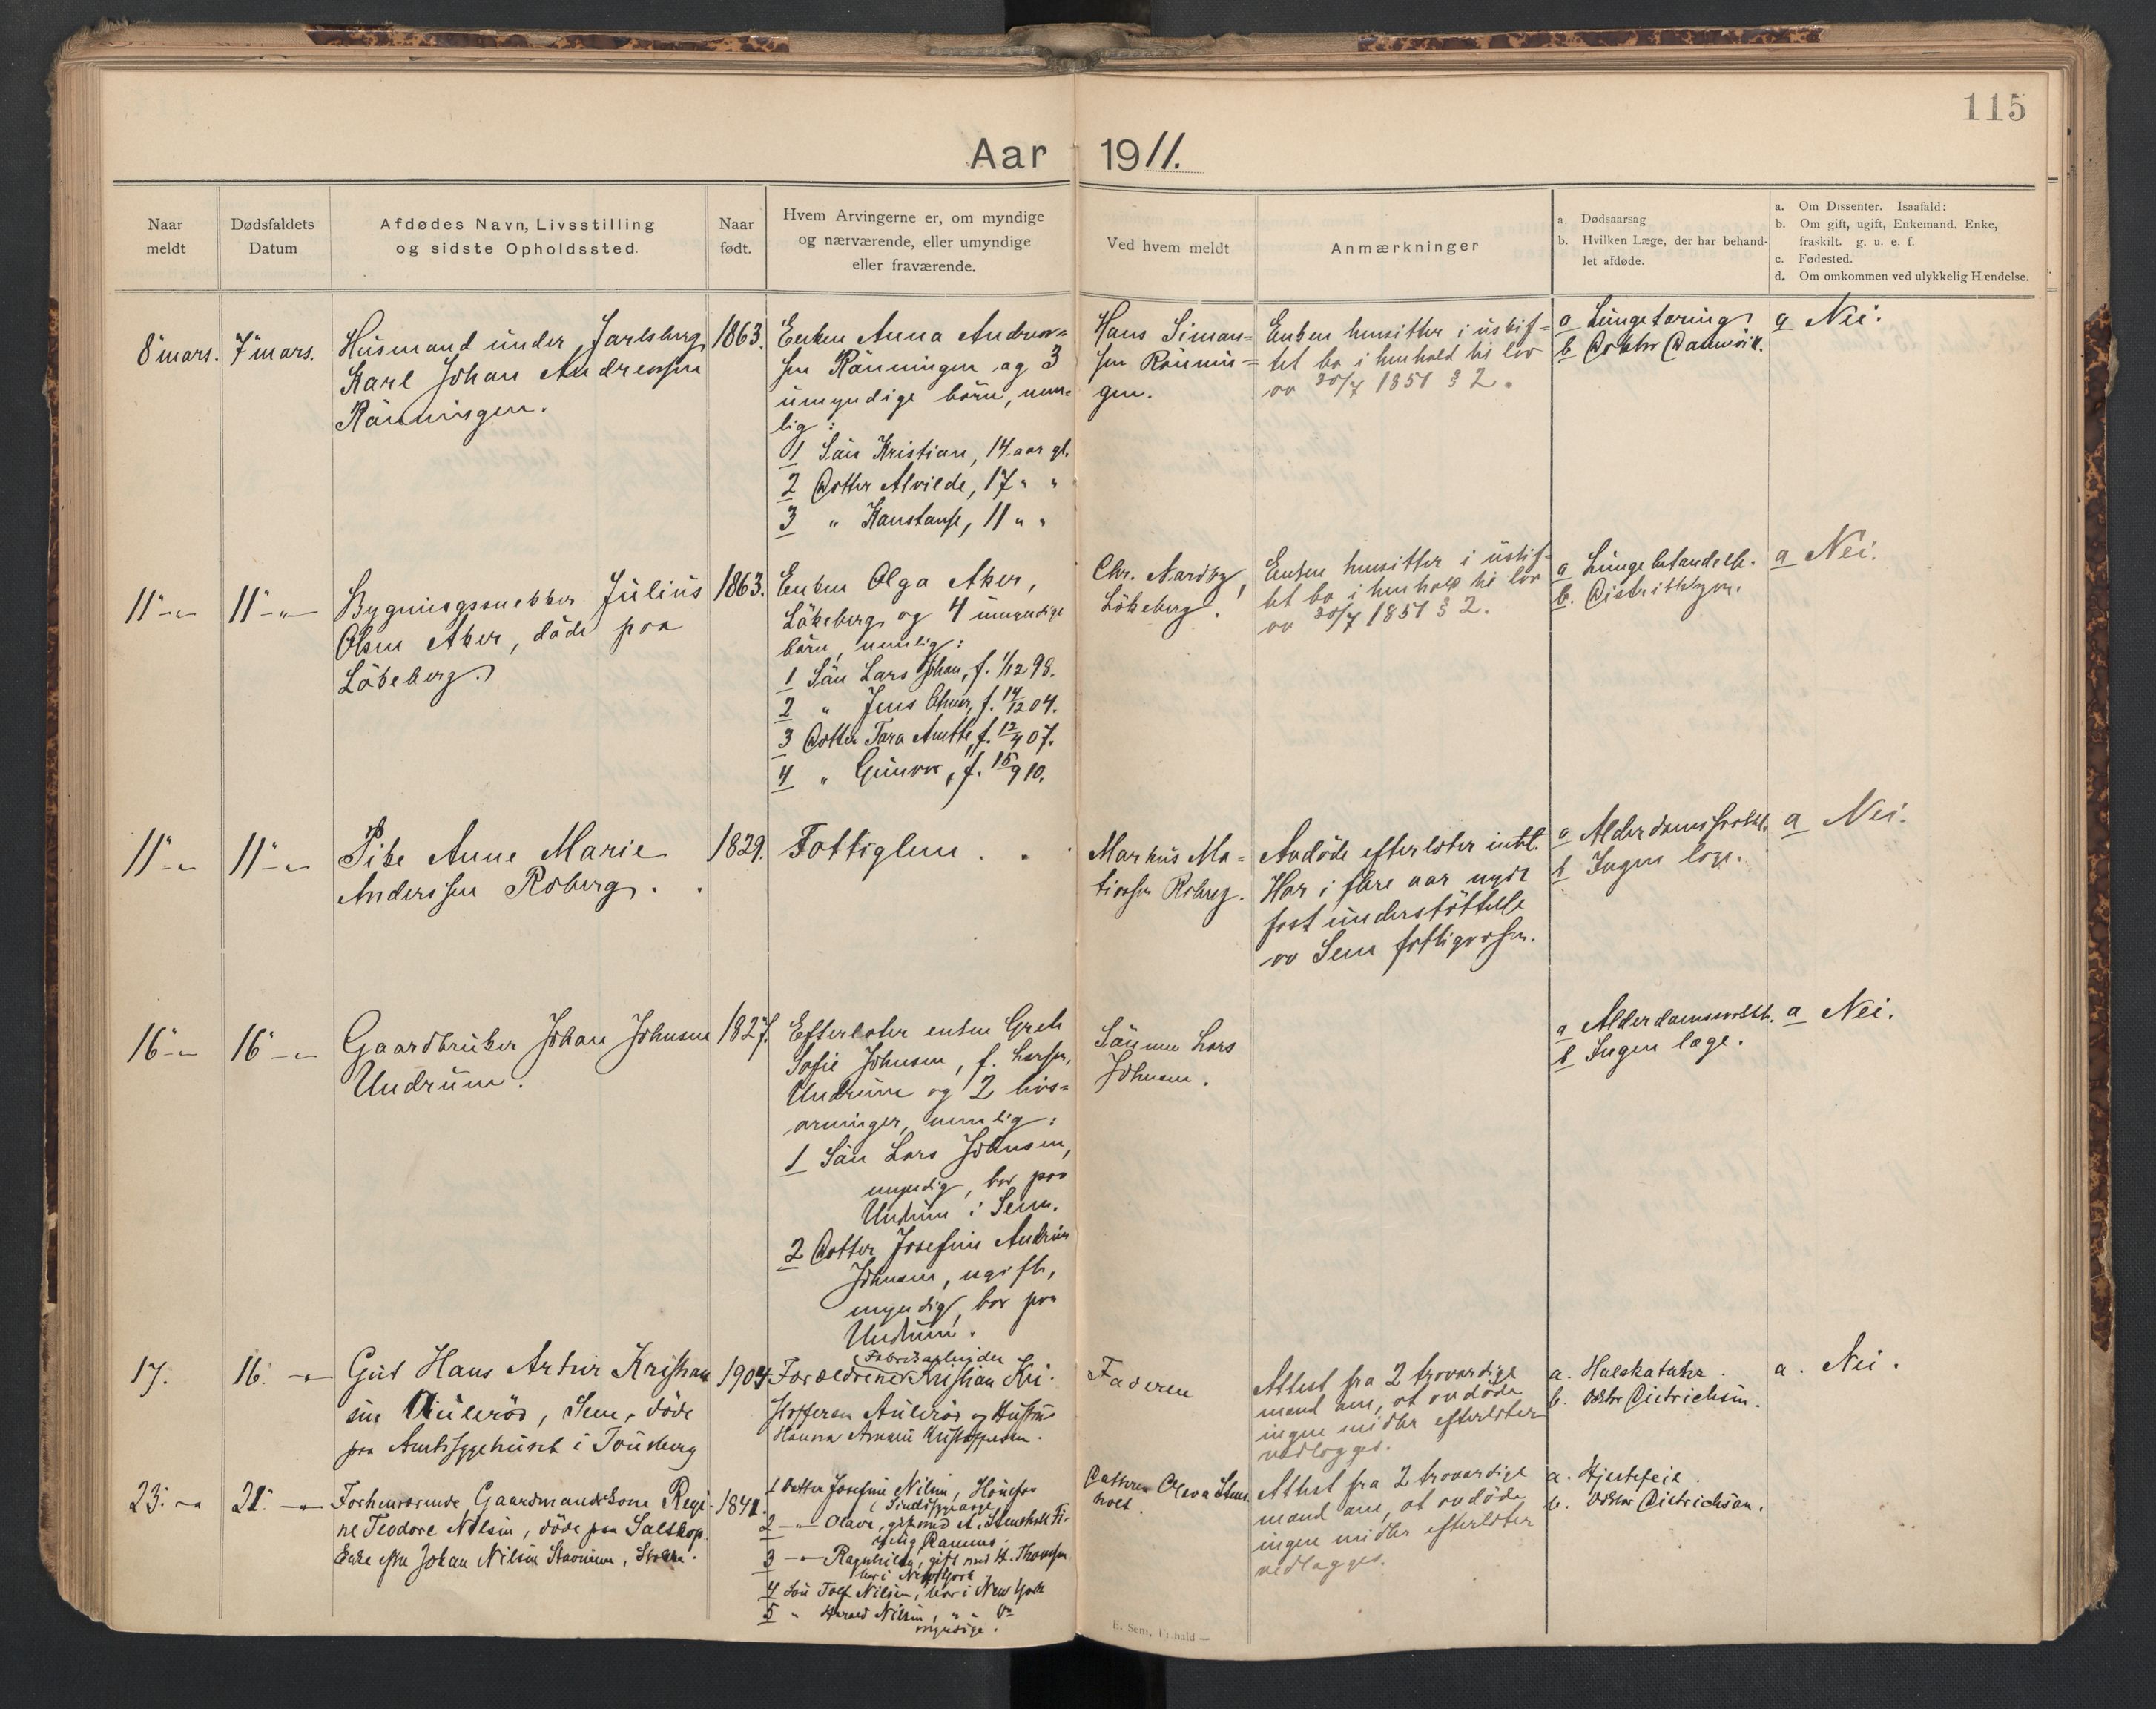 115
Aar 1911.
Naar meldt
Dødsfaldets Datum
Afdødes Navn, Livsstilling
og sidste Opholdssted.
Naar født.
Hvem Arvingerne er, om myndige
og nærværende, eller umyndige
eller fraværende.
Ved hvem meldt
Anmærkninger
a. Dødsaarsag
b. Hvilken Læge, der har behand-
let afdøde.
a. Om Dissenter. Isaafald:
b. Om gift, ugift, Enkemand. Enke,
fraskilt. g. u. e. f.
c. Fødested.
d. Om omkommen ved ulykkelig Hændelse.
8 mars. 7 mars.
Husmand under Jarlsberg
Karl Johan Andressen
Rönningen.
1863.
Enken Anna Andres-
sen Rönningen og 3
umyndige börn, nem-
lig:
1 Sön Kristian, 14 aar gl.
2 Dotter Alvilde, 17 " "
3 " Konstanse, 11 " "
Hans Siman-
sen Rönnin-
gen.
Enken hensitter i uskif-
tet bo i henhold til lov
av 30/7 1851 § 2.
a Lungetæring
b Doktor
a Nei.
11 -"- 11 -"-
Bygningssnekker Julius
Olsen Aker, döde paa
Lökeberg.
1863.
Enken Olga Aker,
Lökeberg og 4 umyndige
börn, nemlig:
1 Sön Lars Johan, f. 1/12 98.
2 " Jens , f. 14/12 04.
3 Dotter Tora Anette, f. 12/4 07.
4 " Gunvor, f. 15/9 10.
Chr. Nordby,
Lökeberg.
Enken hensitter i uskif-
tet bo i henhold til lov
av 30/7 1851 § 2.
a Lungebetændelse.
b. Distriktslægen.
a Nei.
11 -"- 11 -"-
Pike Anne Marie
Anderssen Roberg.
1829.
Fattiglem.
Markus Ma-
tiassen Roberg.
Avdöde efterlater intet.
Har i flere aar nydt
fast understöttelse
av Sem fattigvæsen.
a Alderdomssvakh.
b Ingen læge.
a Nei.
16 -"- 16 -"-
Gaardbruker Johan Johnsen
Undrum.
1827.
Efterlater enken Grete
Sofie Johnsen, f. Larsen,
Undrum og 2 livs-
arvinger, nemlig:
1 Sön Lars Johnsen,
myndig, bor paa
Undrum i Sem.
2 Dotter Josefine Andrine
Johnsen, ugift,
myndig, bor paa
Undrum.
Sönnen Lars
Johnsen.
a Alderdomssvakh.
b Ingen læge.
a Nei.
17. 16. -"-
Gut Hans Artur Kristian
sen Auleröd, Sem, döde
paa Amtssygehuset i Tönsberg
1904
Fabrikarbeider
Forældrene Kristian Kri-
stoffersen Auleröd og Hustru
Hanna Kristoffersen.
Faderen
Attest fra 2 troværdige
mænd om, at avdöde
ingen midler efterlater
vedlægges.
a. Halskatahr.
b. Doktor Dietrichson.
a. Nei.
23. -"- 21. -"-
Forhenværende Gaardmandskone Regi-
ne Teodore Nilsen, döde paa Saltkop.
Enke efter Johan Nilsen , Stokke.
1841.
1 Datter Josefine Nilsen, Hönefos
2 -"- Olava, gift med A. Stensholt
Ramnes.
3 -"- Ragnhilda, gift med H. Thomsen
bor i New York
4 Sön Tolf Nilsen, bor i New York
5 " Harald Nilsen, " " Do
myndige.
Datteren Olava Stens-
holt.
Attest fra 2 troværdige
mænd om, at avdöde
ingen midler efterlater
vedlægges.
a. Hjertefeil.
b. Doktor Dietrichson.
E. Sem, Fr.hald —